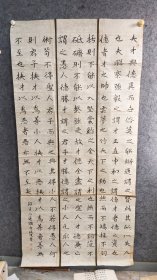 夫才與德異而世俗莫之能辨通謂之賢此其所以失人
也夫聰察強毅之謂才正直中和之謂德才者德之資也
德者才之帥也雲夢之竹天下之勁也然而不矯揉不羽
括則不能以入堅棠谿之金天下之利也然而不鎔範不
砥礪則不能以擊強是故才德全盡謂之聖人才德兼亡
謂之愚人德勝才謂之君子才勝德謂之小人凡取人之
術苟不得聖人君子而與之與其得小人不若得愚人何
則君子挾才以為善小人挾才以為惡挾才以為善者善無
不至也